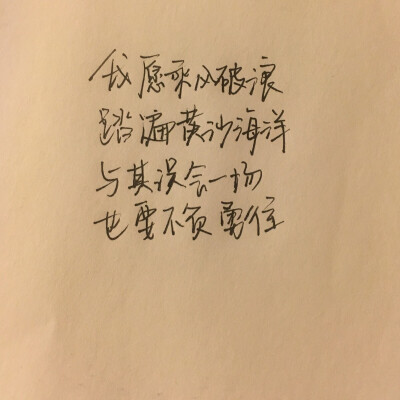 我愿乘风破浪
踏遍黄沙海洋
与其误会一场
也要不负勇往